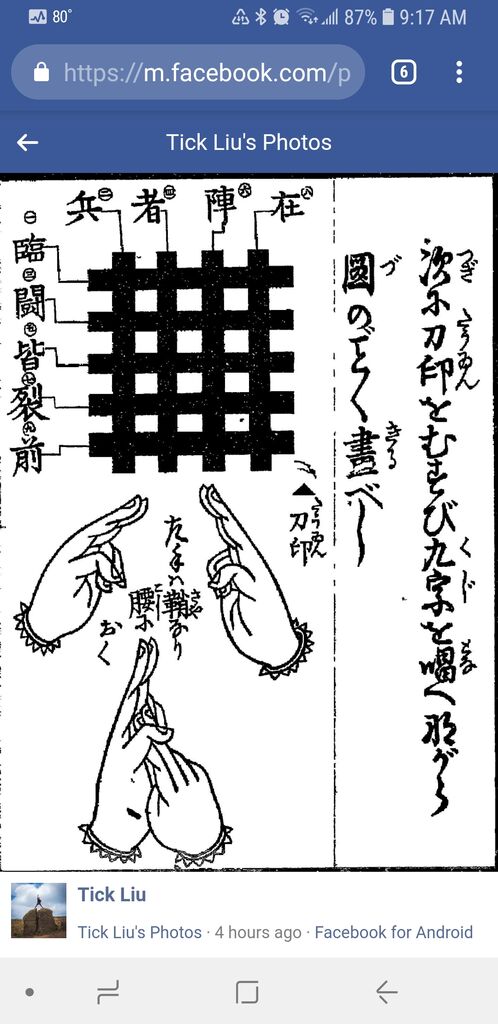 80°
87% 9:17 AM
https://m.facebook.com/p
6
Tick Liu's Photos
次に刀印をむすび九字を唱へながら
つぎ たういん くじ とな
圖のごとく畫べし
づ きる
㊇在
㊅陣
㊃者
㊁兵
㊀臨
㊂闘
㊄皆
㊆裂
㊈前
刀印
たういん
左手ハ鞘なり
さや
腰に
おく
Tick Liu
Tick Liu's Photos · 4 hours ago · Facebook for Android